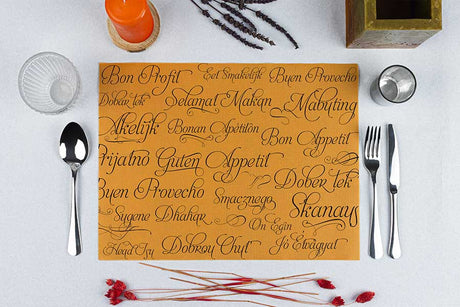 Bon Profit Eet Smakelijk Buen Provecho
Dobar tek Selamat Makan Mabuting
Akelijk Bonan Apétitón Bon Appetit
Prijatnó Guten Appetit Dober tek
Buen Provecho Smacznego Skanaus
Sygene Dhahar On Egin
Dobrou Chuť Jó Étvágyat